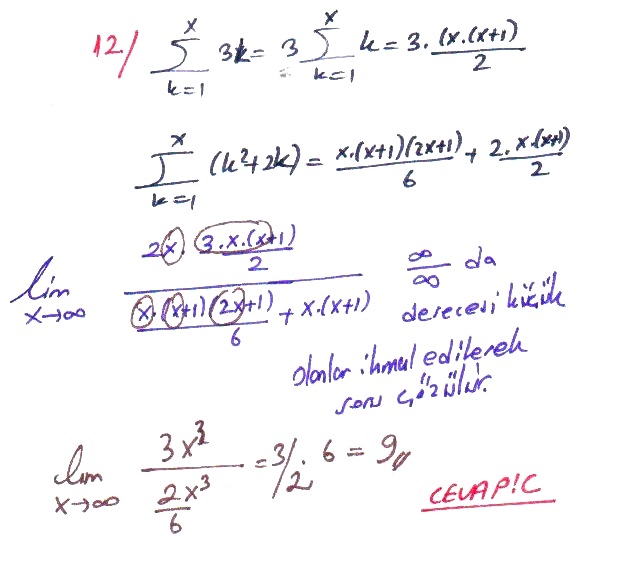 12/ \sum_{k=1}^{x} 3k = 3 \sum_{k=1}^{x} k = 3 \cdot \frac{(x.(x+1)}{2}
\sum_{k=1}^{x} (k^2+2k) = \frac{x.(x+1)(2x+1)}{6} + 2 . \frac{x.(x+1)}{2}
\lim_{x \to \infty} \frac{2x . \frac{3.x.(x+1)}{2}}{\frac{x.(x+1)(2x+1)}{6} + x.(x+1)} \frac{\infty}{\infty} da
derecesi küçük
olanlar ihmal edilerek
soru çözülür.
\lim_{x \to \infty} \frac{3x^3}{\frac{2x^3}{6}} = 3/2 . 6 = 9//
CEVAP:C